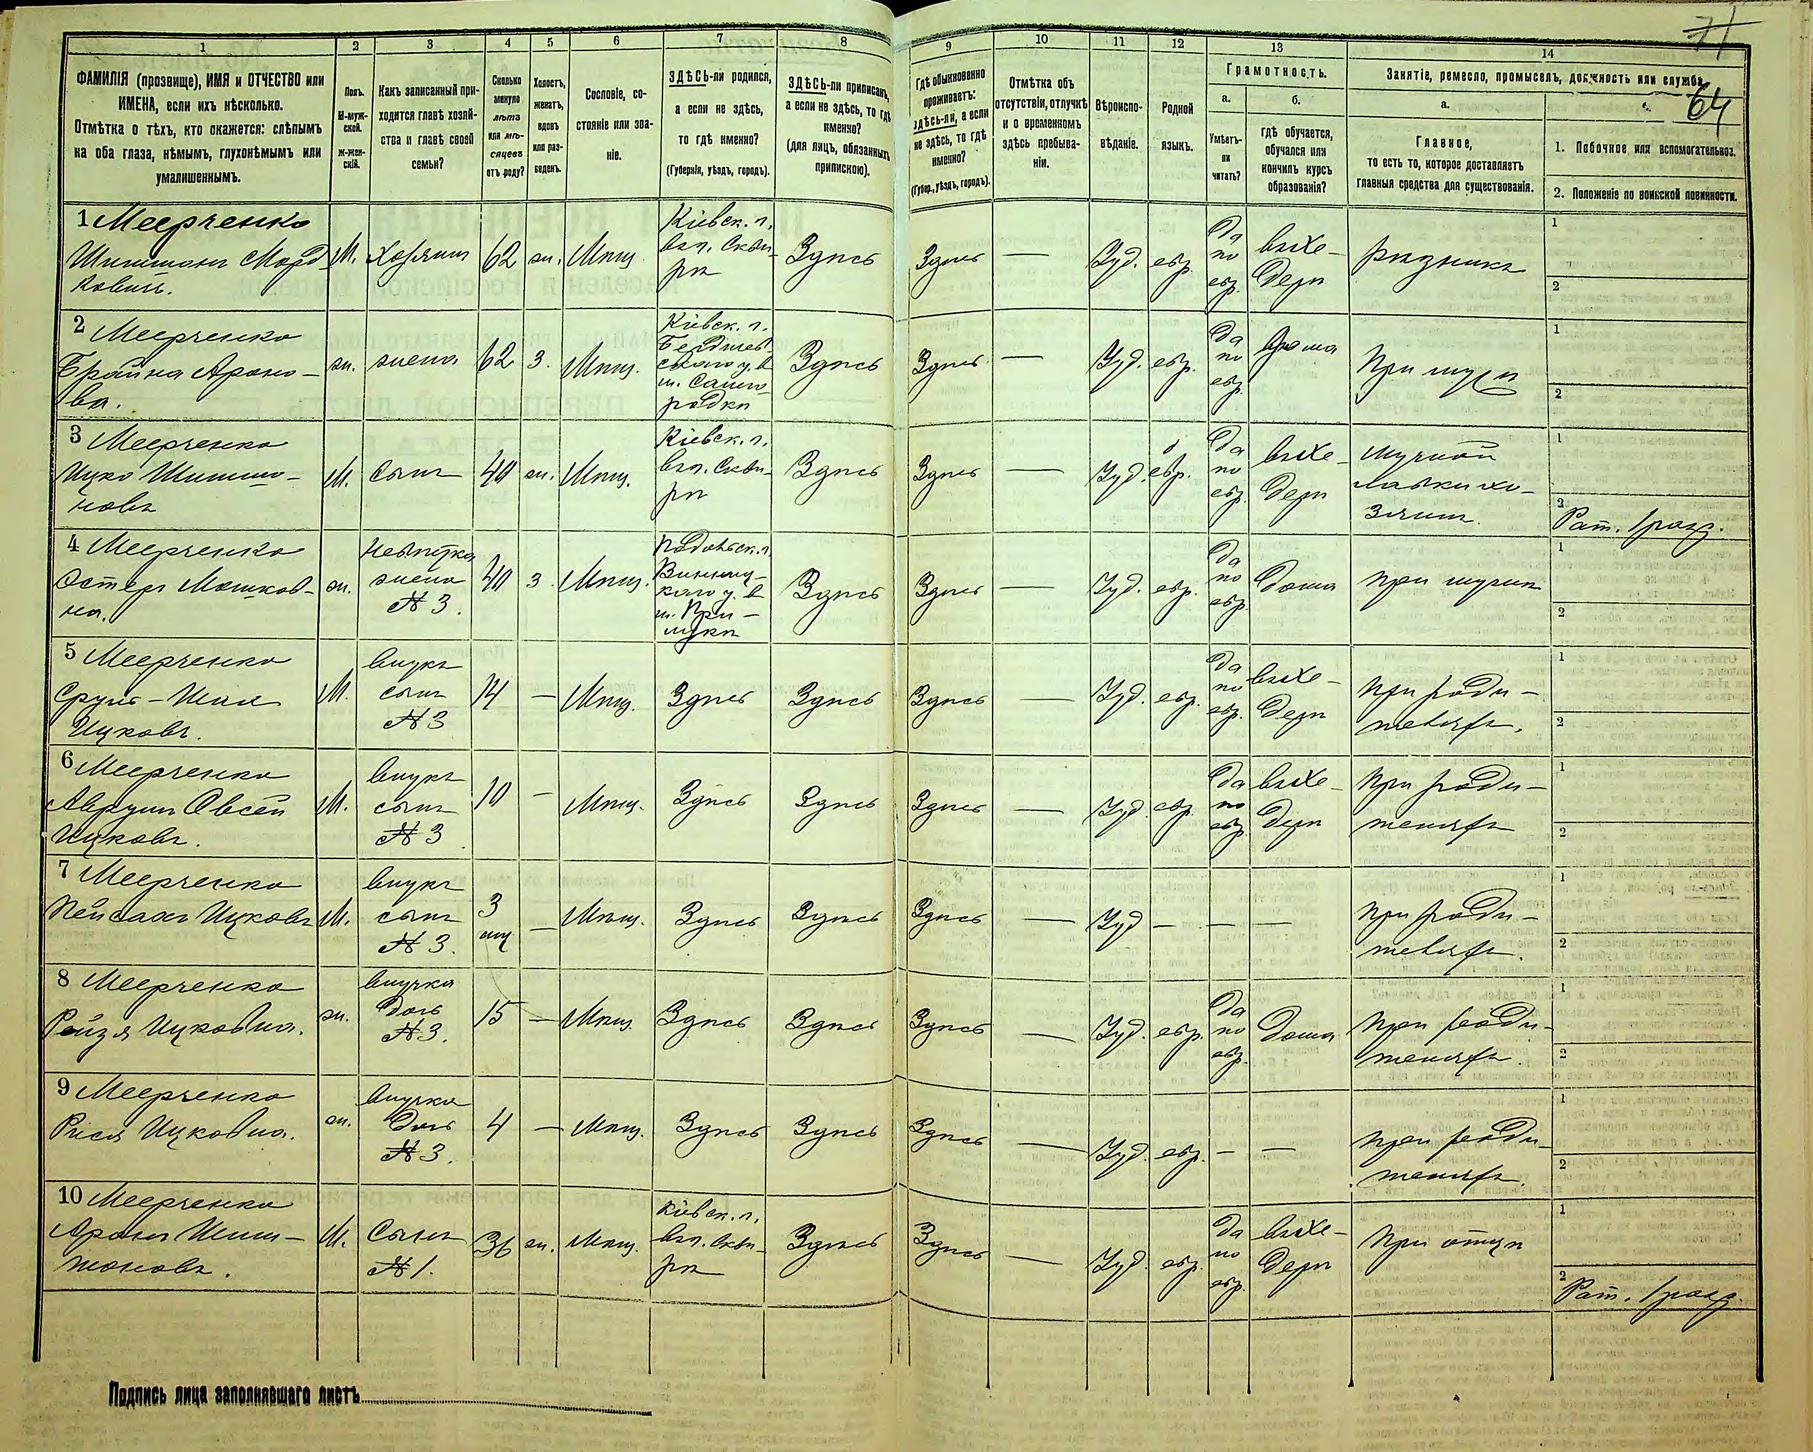 71
64
1
2
3
4
5
6
7
8
9
10
11
12
13
14
ФАМИЛІЯ (прозвище), ИМЯ и ОТЧЕСТВО или
ИМЕНА, если ихъ нѣсколько.
Отмѣтка о тѣхъ, кто окажется: слѣпымъ
на оба глаза, нѣмымъ, глухонѣмымъ или
умалишеннымъ.
Полъ.
М-муж-
ской.
Ж-жен-
скій.
Какъ записанный при-
ходится главѣ хозяй-
ства и главѣ своей
семьи?
Сколько
минуло
лѣтъ
или мѣ-
сяцевъ
отъ роду?
Холостъ,
женатъ,
вдовъ
или раз-
веденъ.
Сословіе, со-
стояніе или зва-
ніе.
ЗДѢСЬ-ли родился,
а если не здѣсь,
то гдѣ именно?
(Губернія, уѣздъ, городъ).
ЗДѢСЬ-ли приписанъ,
а если не здѣсь, то гдѣ
именно?
(для лицъ, обязанныхъ
припискою).
Гдѣ обыкновенно
проживаетъ:
здѣсь-ли, а если
не здѣсь, то гдѣ
именно?
(Губер., уѣздъ, городъ).
Отмѣтка объ
отсутствіи, отлучкѣ
и о временномъ
здѣсь пребыва-
ніи.
Вѣроиспо-
вѣданіе.
Родной
языкъ.
Грамотность.
а.
б.
Умѣетъ-
ли
читать?
гдѣ обучается,
обучался или
кончилъ курсъ
образованія?
Занятіе, ремесло, промыселъ, должность или служба.
а.
Главное,
то есть то, которое доставляетъ
главныя средства для существованія.
1. Побочное или вспомогательное.
2. Положеніе по воинской повинности.
1 Меерченко
Шимшонъ Морд
ковичъ.
М. Хозяинъ 62 ж. Мѣщ
Кіевск. г.
вгл. Сквы-
рѣ
Здѣсь Здѣсь — Іуд. евр.
Да
по
евр.
въ хе-
дерѣ
рѣзникъ
1
2
2 Меерченко
Брайна Ароно-
ва.
ж. жена 62 З. Мѣщ.
Кіевск. г.
Бердичев-
скаго у. в
м. Самго
родки
Здѣсь Здѣсь — Іуд. евр.
Да
по
евр.
дома
При мужѣ
1
2
3 Меерченко
Ицко Шимшо-
новъ
М. Сынъ 40 ж. Мѣщ.
Кіевск. г.
вгл. Сквы-
рѣ
Здѣсь Здѣсь — Іуд. евр.
Да
по
евр.
въ хе-
дерѣ
мучной
лавки хо-
зяинъ.
1
2
Рат. 1 разр.
4 Меерченко
Эстеръ Мошков-
на.
ж.
невѣстка
жена
№ 3.
40 З Мѣщ.
Подольск. г.
Винниц-
каго у. в
м. При-
лукѣ
Здѣсь Здѣсь — Іуд. евр.
Да
по
евр.
дома при мужѣ
1
2
5 Меерченко
Сруль-
Ицковъ.
М.
внукъ
сынъ
№ 3
14 — Мѣщ. Здѣсь Здѣсь Здѣсь — Іуд. евр.
Да
по
евр.
въ хе-
дерѣ
при роди-
теляхъ.
1
2
6 Меерченко
Аврумъ Овсей
Ицковъ.
М.
внукъ
сынъ
№ 3
10 — Мѣщ. Здѣсь Здѣсь Здѣсь — Іуд. евр.
Да
по
евр.
въ хе-
дерѣ
при роди-
теляхъ
1
2
7 Меерченко
Пейсахъ Ицковъ
М.
внукъ
сынъ
№ 3.
3
— Мѣщ. Здѣсь Здѣсь Здѣсь — Іуд — — —
при роди-
теляхъ.
1
2
8 Меерченко
Рейзя Ицковна.
ж.
внучка
дочь
№ 3.
15 — Мѣщ. Здѣсь Здѣсь Здѣсь — Іуд. евр.
Да
по
евр.
дома
при роди-
теляхъ.
1
2
9 Меерченко
Рися Ицковна.
ж.
внучка
дочь
№ 3.
4 — Мѣщ. Здѣсь Здѣсь Здѣсь — Іуд. евр. — —
при роди-
теляхъ.
1
2
10 Меерченко
Аронъ Шим-
шоновъ.
М.
Сынъ
№ 1.
36 ж. Мѣщ.
Кіевск. г.
вгл. Сквы-
рѣ
Здѣсь Здѣсь — Іуд. евр.
Да
по
евр.
въ хе-
дерѣ
при отцѣ
1
2
Рат. 1 разр.
Подпись лица заполнявшаго листъ